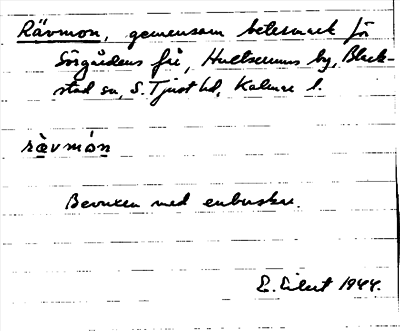 Rävmon, gemensam betesmark för
Sörgårdens fä, Hultserums by, Black-
stad sn, S. Tjust hd, Kalmar l.
rävmón
Bevuxen med enbuskar.
E. Eilert 1944.